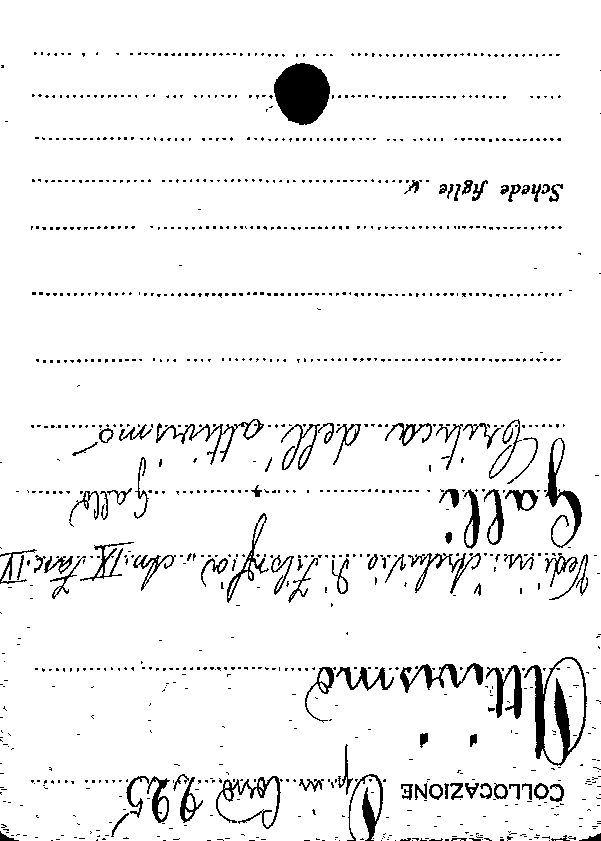 COLLOCAZIONE Op. in Cons 225
Attivismo
Vedi in: "Archivio di Filosofia" An. IX Fasc. IV
Galli Gallo
Critica dell'attivismo
Schede figlie v.